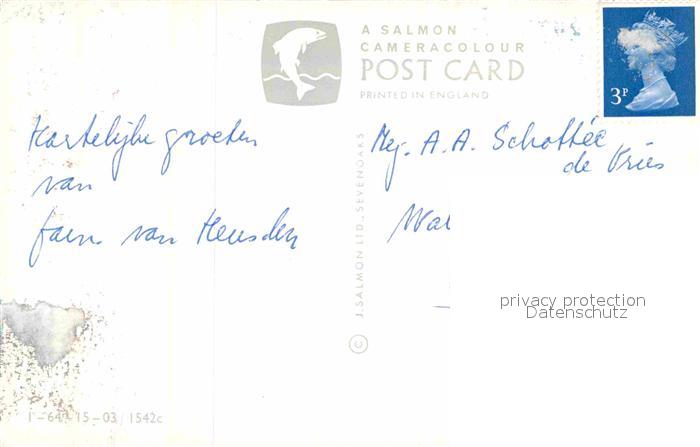 A SALMON
CAMERACOLOUR
POST CARD
PRINTED IN ENGLAND
3P
Hartelijke groeten
van
fam. van Heusden
© J. SALMON LTD., SEVENOAKS
Mej. A. A. Schottée
de Vries
Wal
privacy protection
Datenschutz
1-64-15-03/1542c